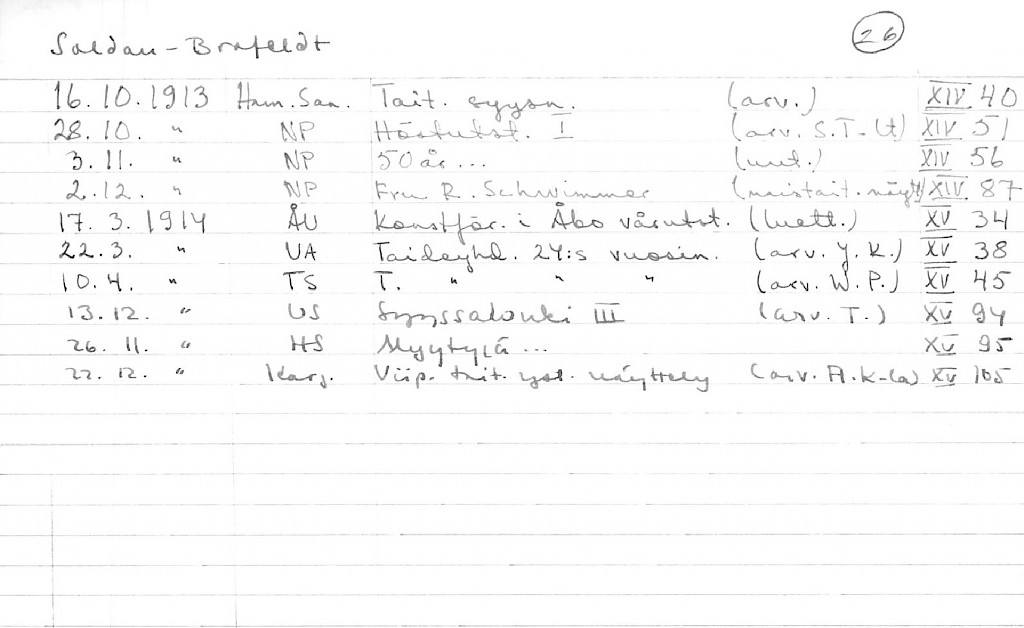 Soldan-Brofeldt
26
16.10.1913 Ham. San. Tait. syysn. (arv.) XIV 40
28.10. " NP Höstutst. I (arv. S.T-lt) XIV 51
3.11. " NP 50 år... (uut.) XIV 56
2.12. " NP Fru R. Schwimmer (naistait. näyt) XIV 87
17.3.1914 ÅU Konstför. i Åbo vårutst. (luett.) XV 34
22.3. " UA Taideyhd. 24:s vuosin. (arv. Y.K.) XV 38
10.4. " TS T. " " " (arv. W.P.) XV 45
13.12. " US Syyssalonki III (arv. T.) XV 94
26.11. " HS Myytyjä... XV 95
22.12. " Karj. Viip. tait. yst. näyttely (arv. A.K-la) XV 105